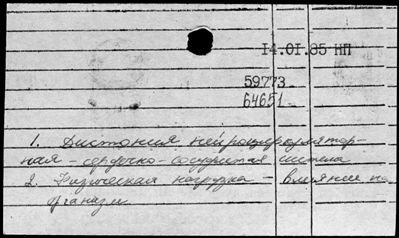 14.01.85 НП
59773
64651
1. Дистония нейроциркулятор-
ная - сердечно-сосудистая система
2. Физическая нагрузка - влияние на
организм